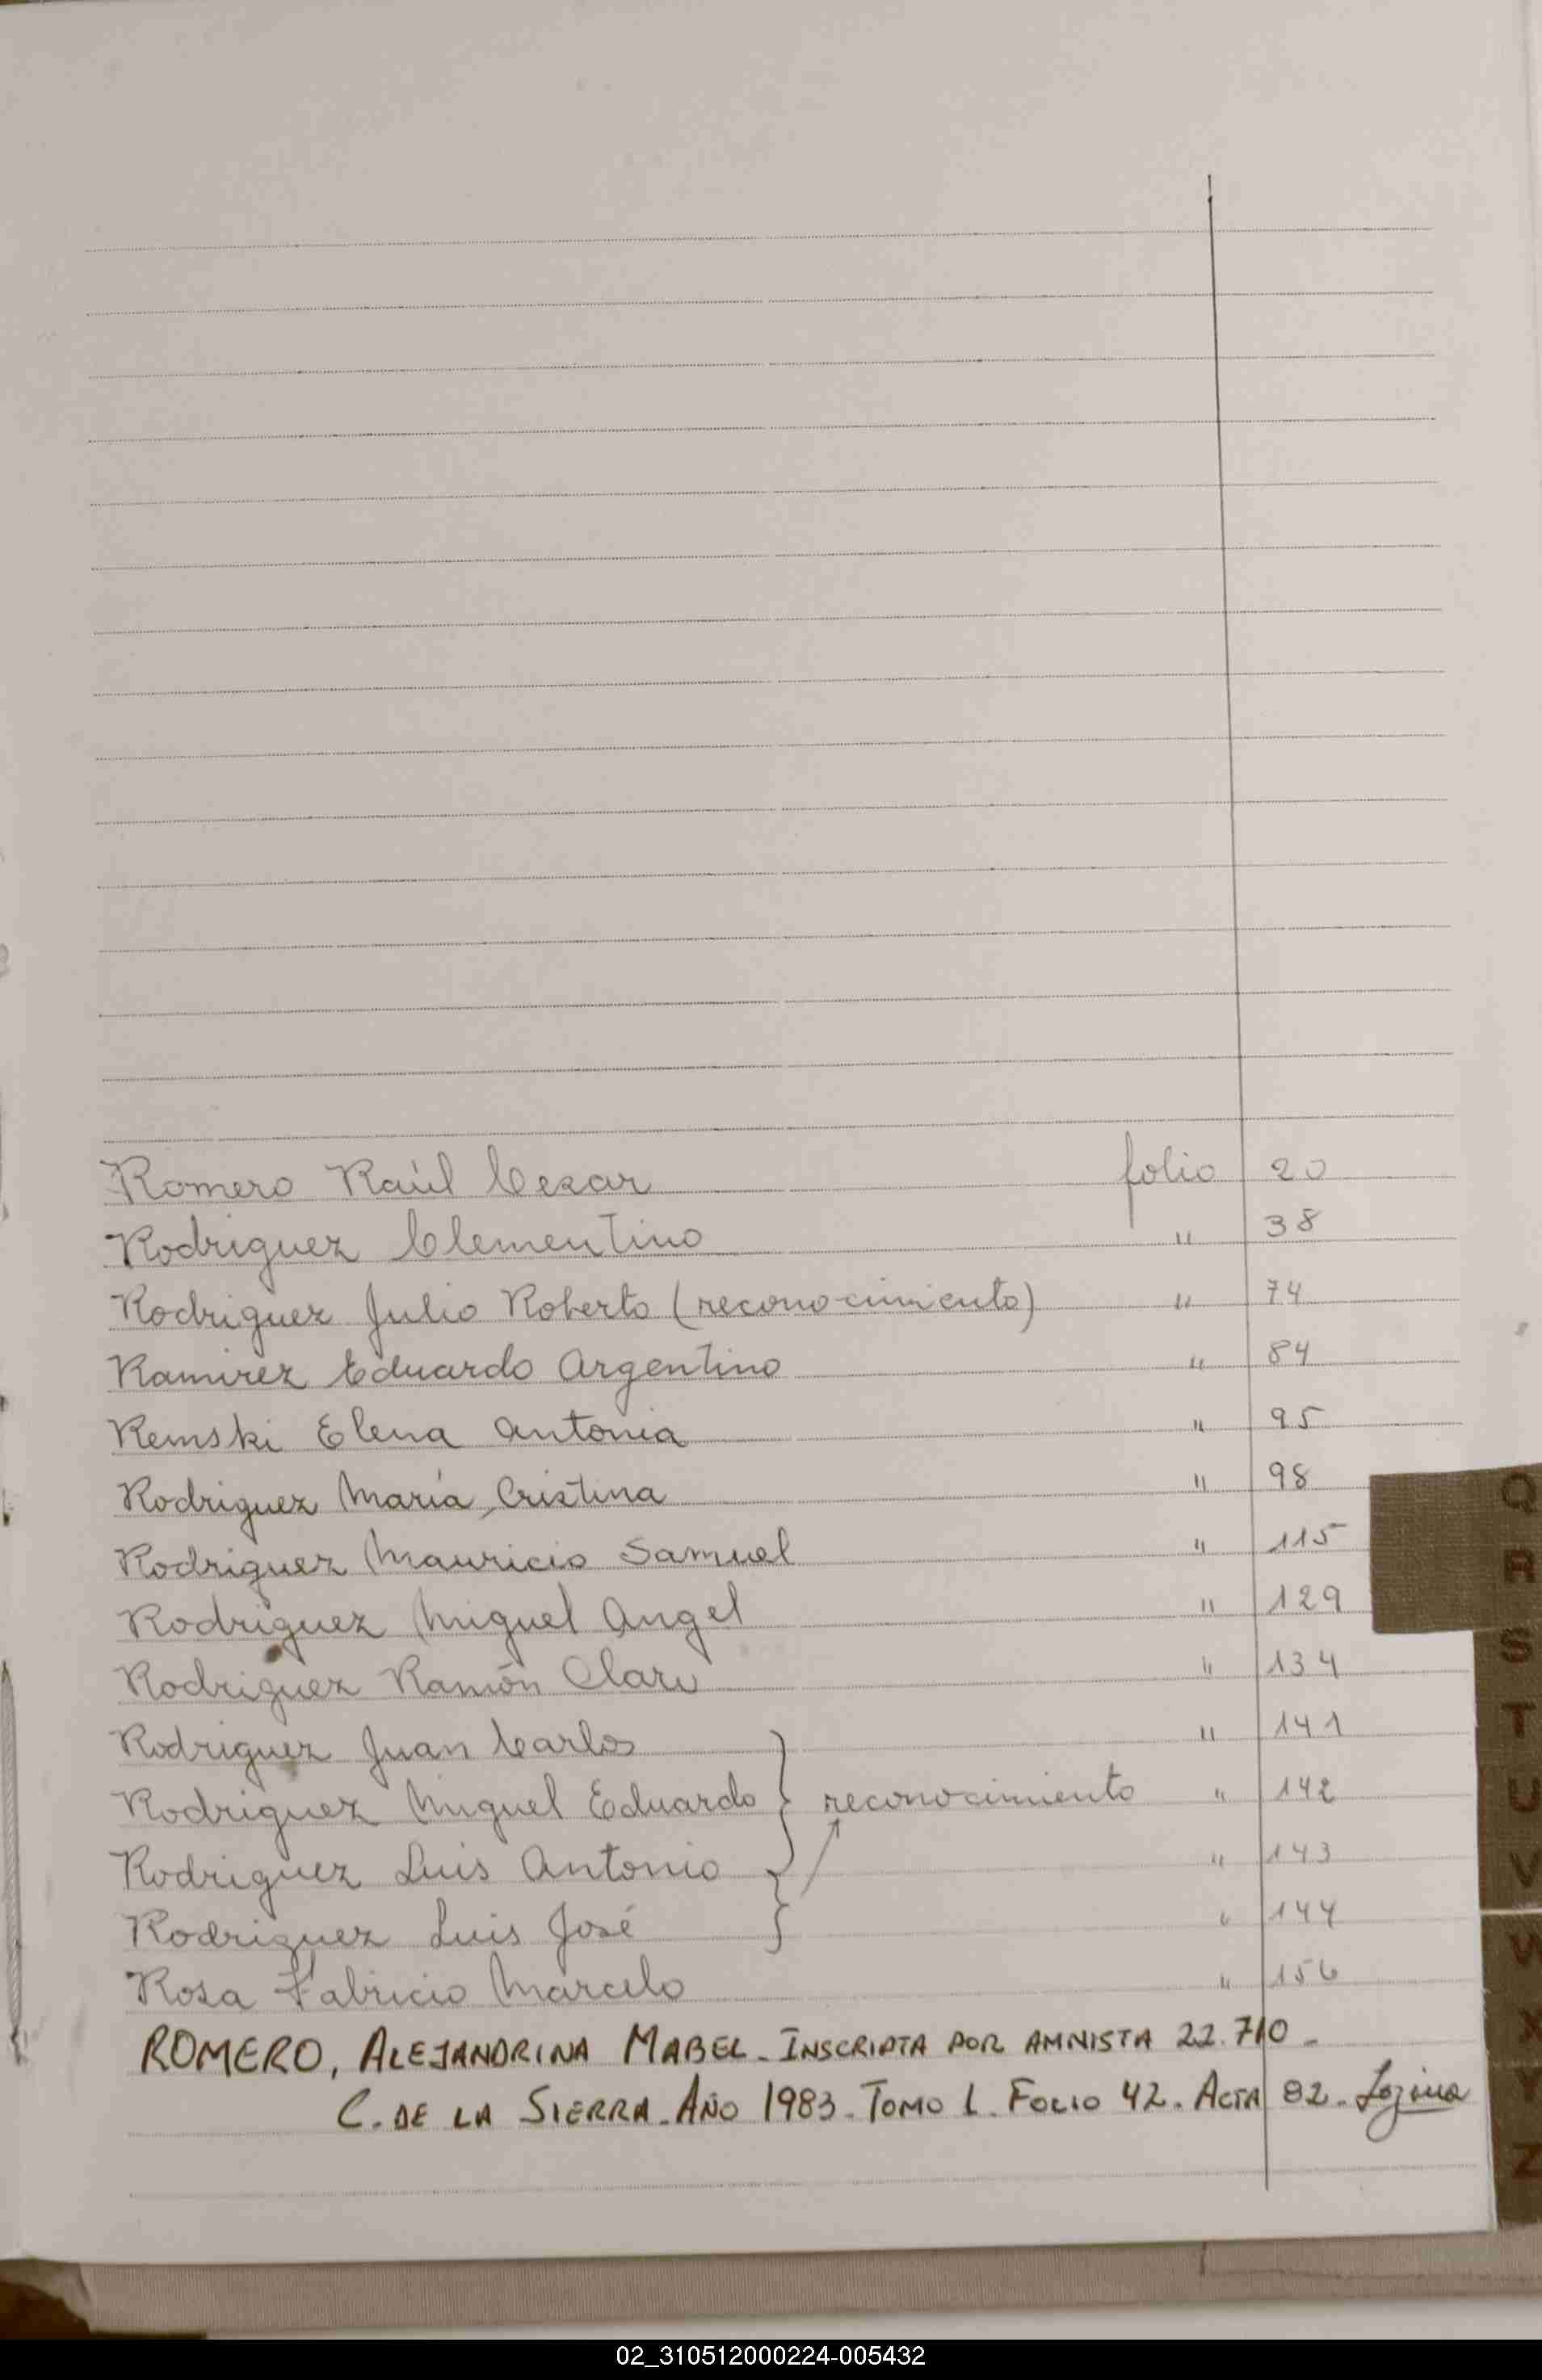 Romero Raúl Cezar folio 20
Rodriguez Clementino " 38
Rodriguez Julio Roberto (reconocimiento) " 74
Ramirez Eduardo Argentino " 84
Remski Elena Antonia " 95
Rodriguez María Cristina " 98
Rodriguez Mauricio Samuel " 115
Rodriguez Miguel Angel " 129
Rodriguez Ramón Claru " 134
Rodriguez Juan Carlos " 141
Rodriguez Miguel Eduardo } reconocimiento " 142
Rodriguez Luis Antonio " 143
Rodriguez Luis José } " 144
Rosa Fabricio Marcelo " 156
ROMERO, ALEJANDRINA MABEL. INSCRIPTA POR AMNISTA 22.710 -
C. DE LA SIERRA. AÑO 1983. TOMO 1. FOLIO 42. ACTA 82.
Q
R
S
T
U
V
W
X
Y
Z
02_310512000224-005432